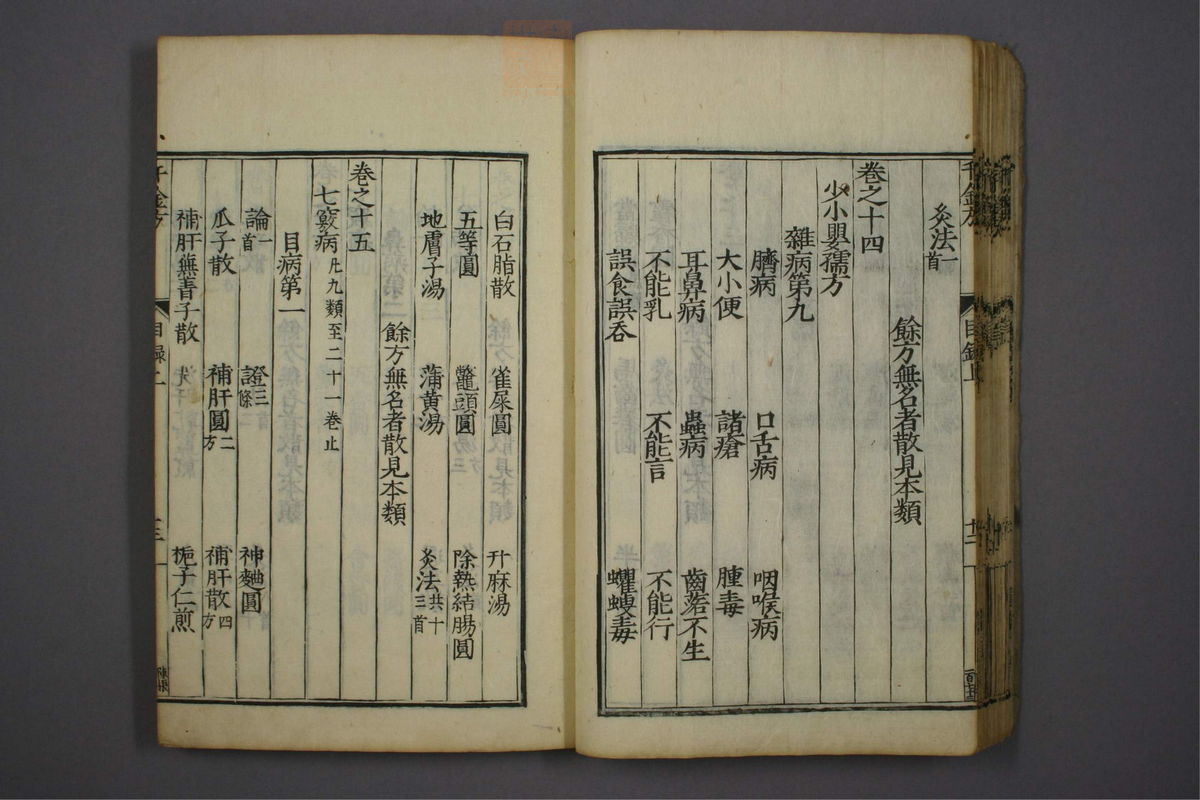 灸法一首
餘方無名者散見本類
卷之十四
少小嬰孺方
雜病第九
臍病 口舌病 咽喉病
大小便 諸瘡 腫毒
耳鼻病 蟲病 齒落不生
不能乳 不能言 不能行
誤食誤吞 蠷螋毒
白石脂散 雀屎圓 升麻湯
五等圓 鼈頭圓 除熱結腸圓
地膚子湯 蒲黃湯 灸法共十三首
餘方無名者散見本類
卷之十五
七竅病凡九類至二十一卷止
目病第一
論一首 證三條 神麯圓
瓜子散 補肝圓二方 補肝散四方
補肝蕪菁子散 梔子仁煎
千金方 目錄